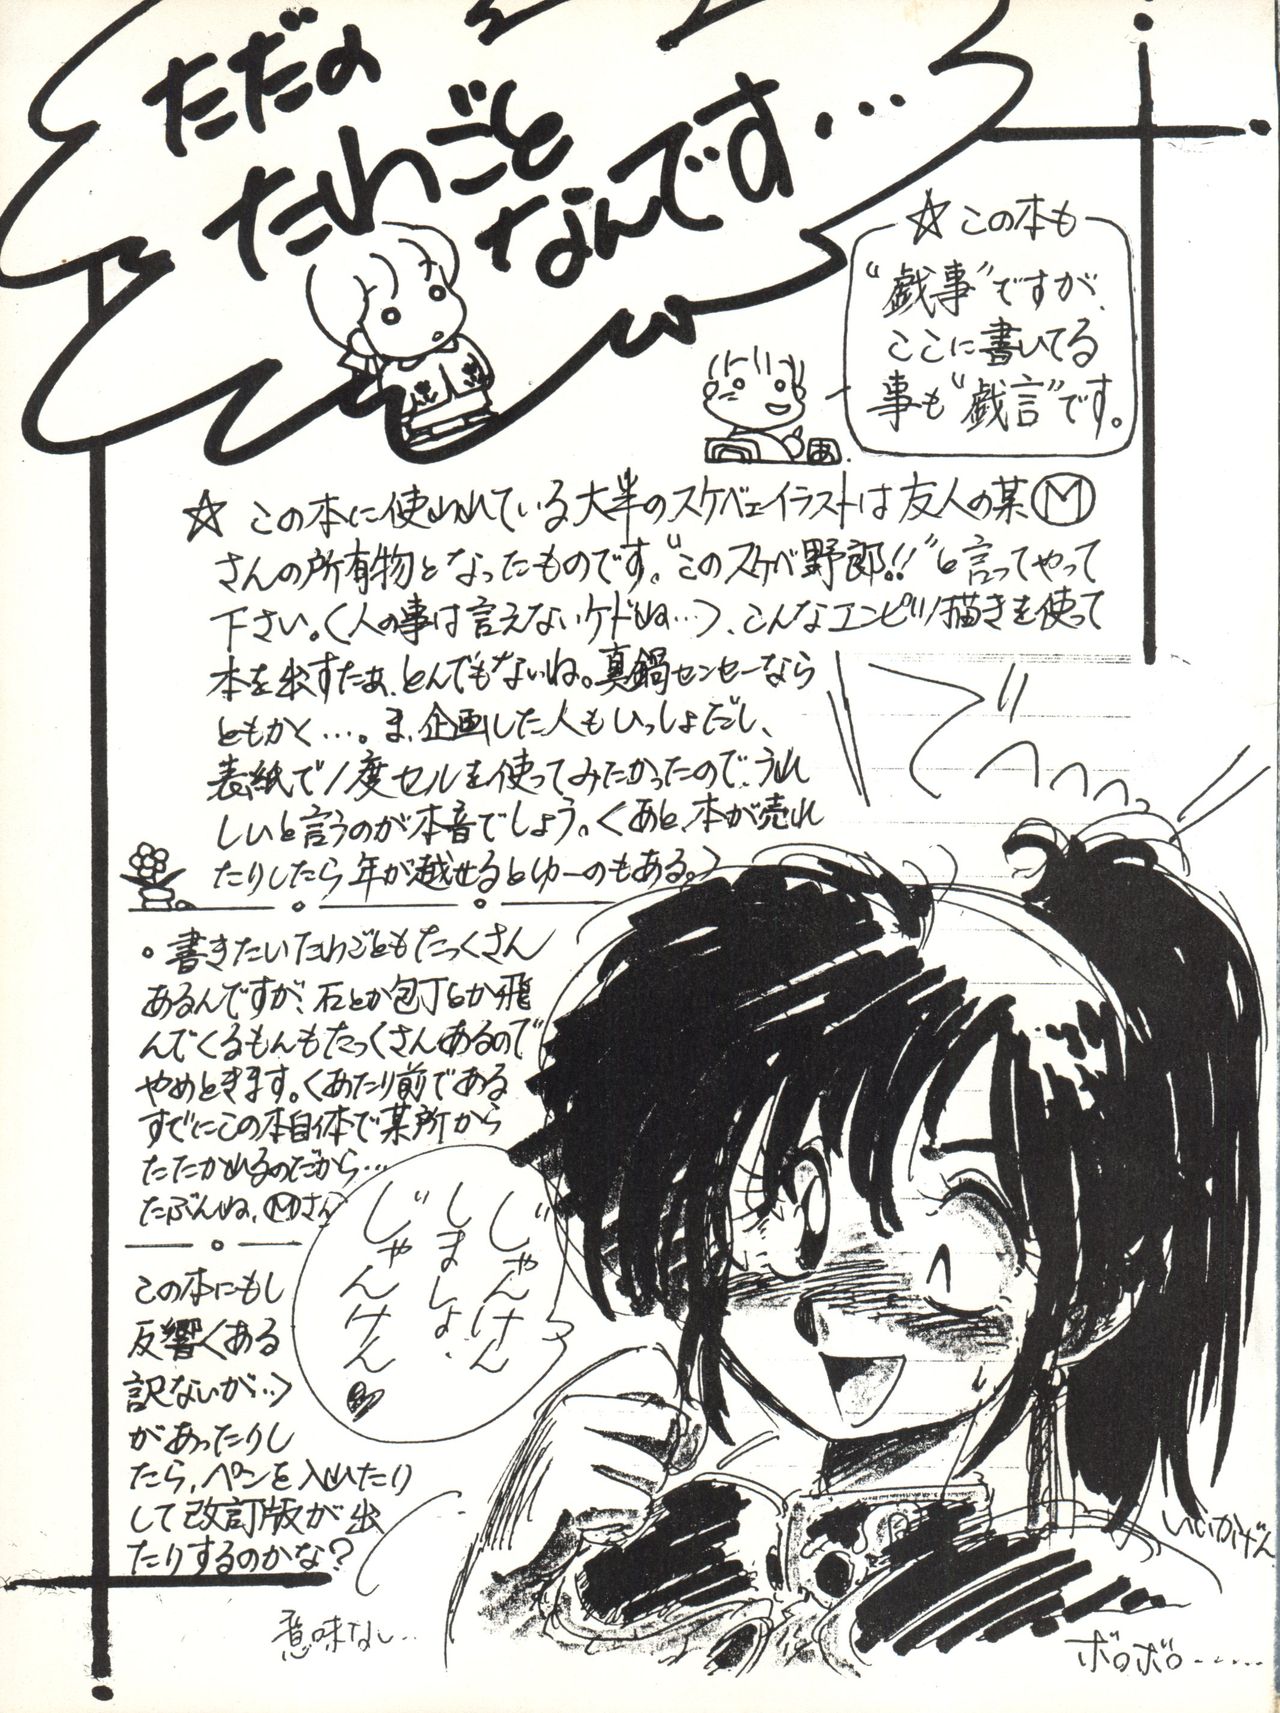 ただの
たわごと
なんです…
☆この本も
“戯事”ですが、
ここに書いてる
事も“戯言”です。
あ
☆この本に使われている大半のスケベェイラストは友人の某Ⓜ
さんの所有物となったものです。“このスケベ野郎!!”と言ってやって
下さい。〈人の事は言えないケドね…〉、こんなエンピツ描きを使って
本を出すたぁ、とんでもないね。真鍋センセーなら
ともかく…。ま、企画した人もいっしょだし、
表紙で1度セルを使ってみたかったので、うれ
しいと言うのが本音でしょう。〈あと、本が売れ
たりしたら年が越せるとゆーのもある。〉
。書きたいたわごともたっくさん
あるんですが、石とか包丁とか飛
んでくるもんもたっくさんあるので
やめときます。〈あたり前である
すでにこの本自体で某所から
たたかれるのだから…
たぶんね、Ⓜさん
この本にもし
反響〈ある
訳ないが…〉
があったりし
たら、ペンを入れたり
して改訂版が出
たりするのかな?
じゃんけん
しましょ、
じゃんけん
いいかげん
意味なし…
ボロボロ……